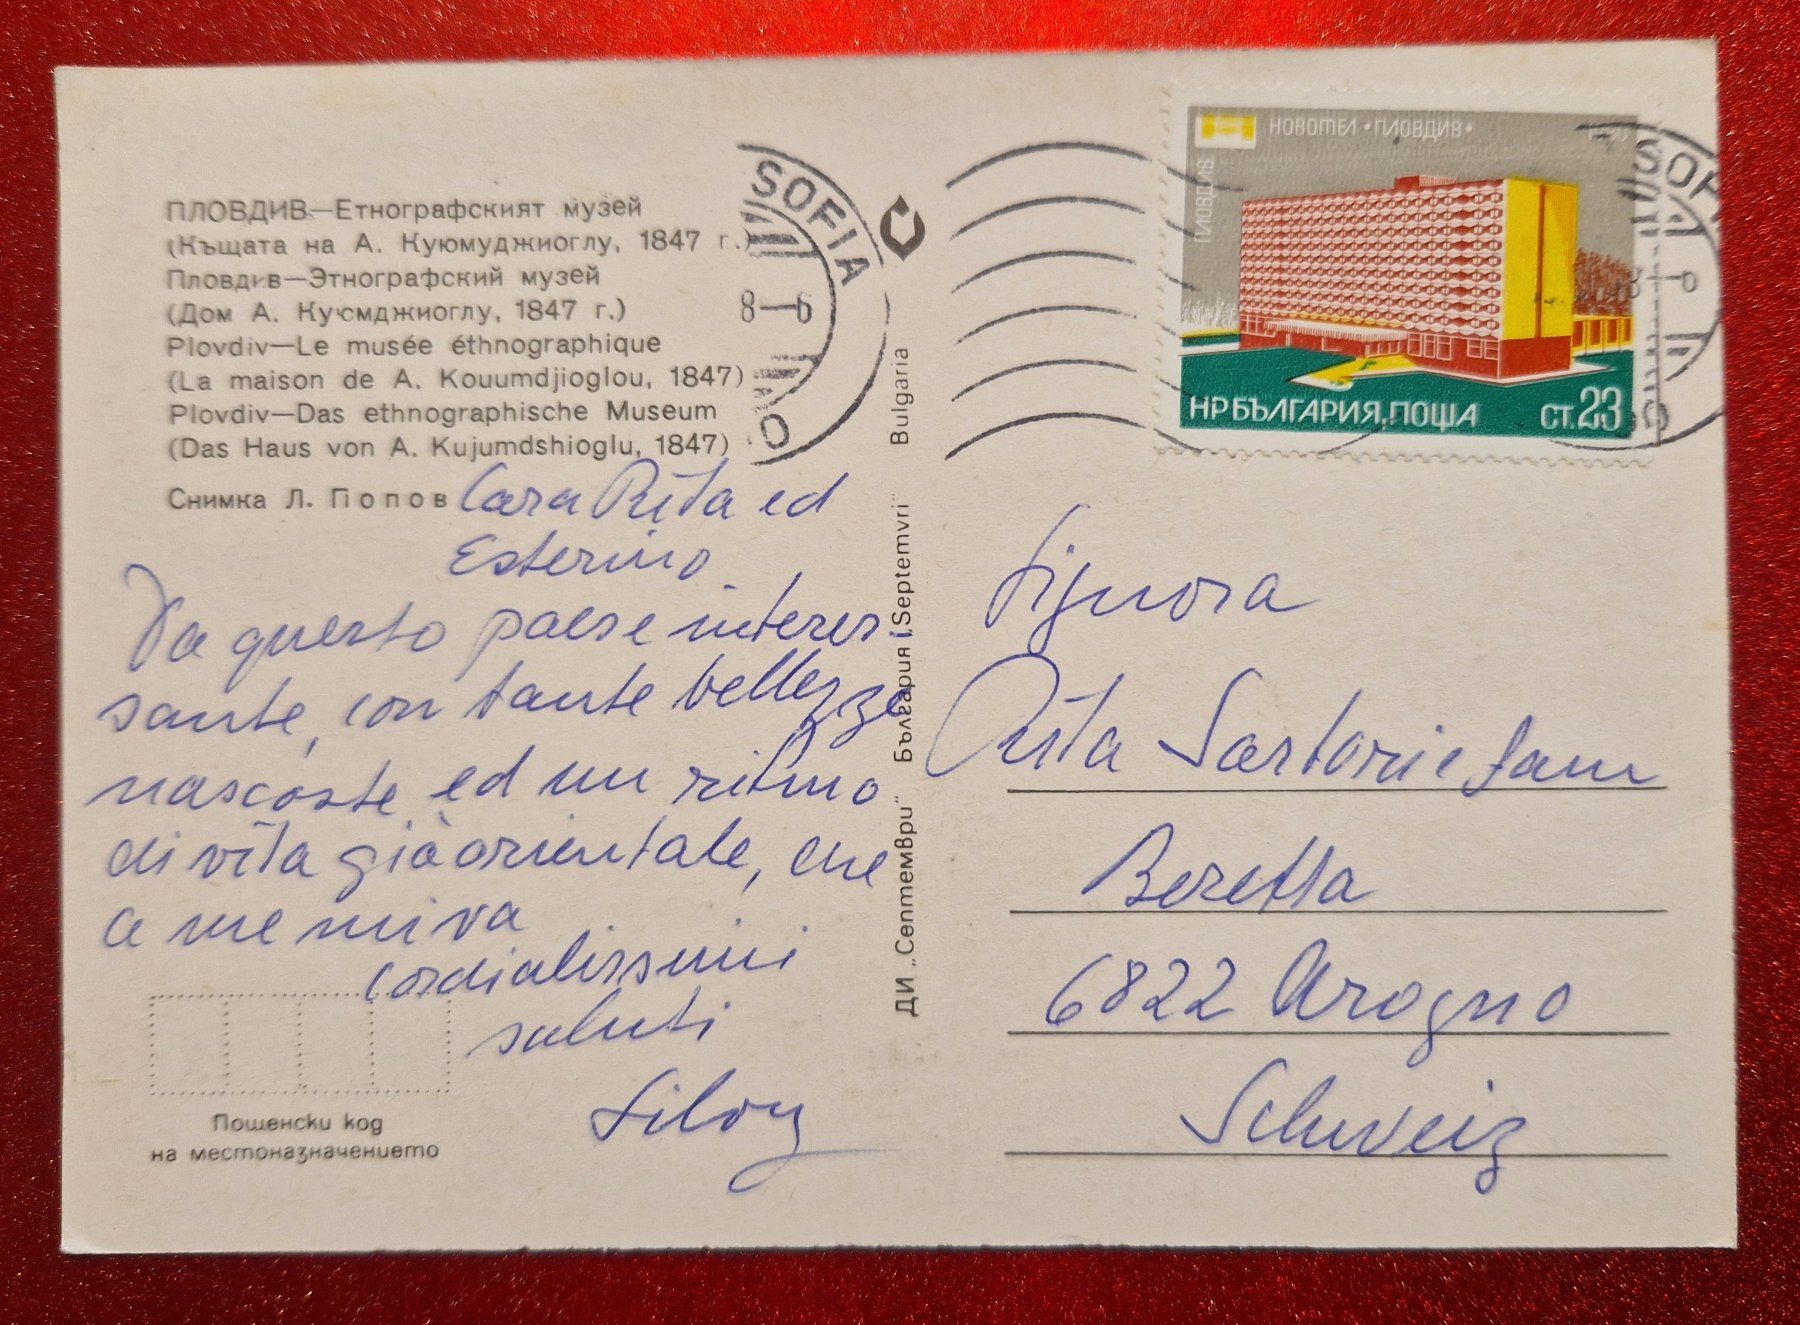 ПЛОВДИВ—Етнографският музей
(Къщата на А. Куюмуджиоглу, 1847 г.)
Пловдив—Этнографский музей
(Дом А. Куюмджиоглу, 1847 г.)
Plovdiv—Le musée éthnographique
(La maison de A. Kouumdjioglou, 1847)
Plovdiv—Das ethnographische Museum
(Das Haus von A. Kujumdshioglu, 1847)
Снимка Л. Попов
Cara Rita ed
Esterino
Da questo paese interes
sante, con tante bellezze
nascoste ed un ritmo
di vita già orientale, che
a me mi va
cordialissimi
saluti
Silvy
Пощенски код
на местоназначението
SOFIA
8—6
ДИ „Септември“ България „Septemvri“ Bulgaria
НОВОТЕЛ •ПЛОВДИВ•
ПЛОВДИВ
НР БЪЛГАРИЯ, ПОЩА СТ. 23
Signora
Rita Sartori e fam
Beretta
6822 Arogno
Schweiz